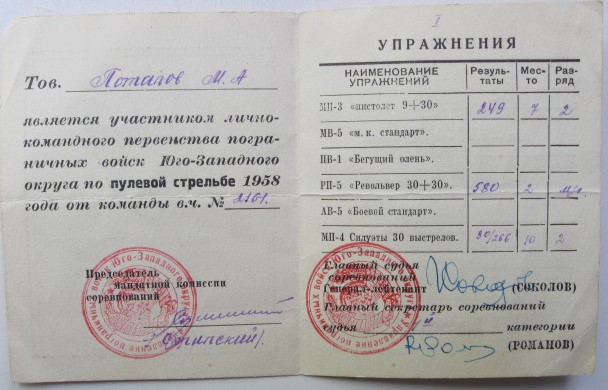 Тов. Потапов М. А
является участником лично-
командного первенства погра-
ничных войск Юго-Западного
округа по пулевой стрельбе 1958
года от команды в.ч. № 2161.
Председатель
мандатной комиссии
соревнований
I
УПРАЖНЕНИЯ
НАИМЕНОВАНИЕ УПРАЖНЕНИЙ Резуль-таты Мес-то Раз-ряд
МП-3 «пистолет 9+30» 249 7 2
МВ-5 «м. к. стандарт».
ПВ-1 «Бегущий олень».
РП-5 «Револьвер 30+30». 580 2
АВ-5 «Боевой стандарт».
МП-4 Силуэты 30 выстрелов. 30/266 10 2
Главный судья
соревнований
Генерал-лейтенант (СОКОЛОВ)
Главный секретарь соревнований
судья категории
(РОМАНОВ)